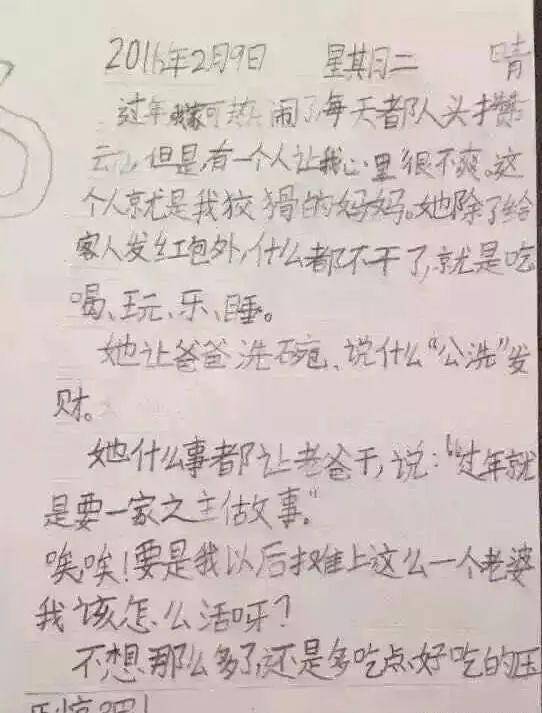 2016年2月9日 星期二 晴
过年我家可热闹了,每天都人头攒
云儿,但是,有一个人让我心里很不爽。这
个人就是我狡猾的妈妈。她除了给
客人发红包外,什么都不干了,就是吃
喝、玩、乐、睡。
她让爸爸洗碗、说什么“公洗”发
财。
她什么事都让老爸干,说:“过年就
是要一家之主做故事。”
唉唉!要是我以后摊上这么一个老婆
我该怎么活呀?
不想那么多了,还是多吃点好吃的压
压惊吧!